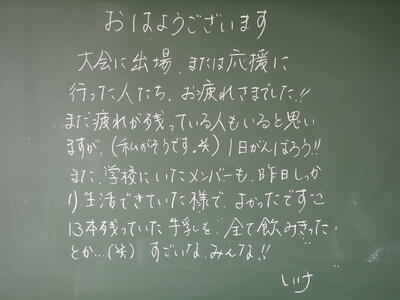 おはようございます
大会に出場、または応援に
行った人たち、お疲れさまでした!!
まだ疲れが残っている人もいると思い
ますが、(私がそうです。笑) 1日がんばろう!!
また、学校にいたメンバーも、昨日しっか
り生活できていた様で、よかったですᵕ̈
13本残っていた牛乳を、全て飲みきった
とか…(笑) すごいな、みんな!!